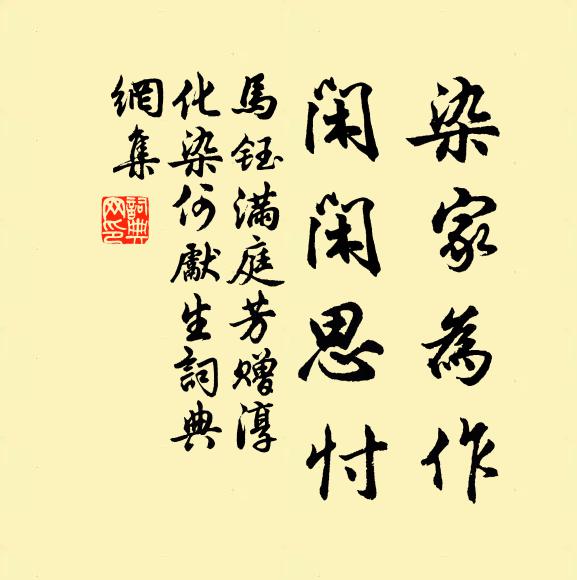 染家為作
閑閑思忖
馬鈺滿庭芳贈淳
化染何獻生詞典
網集
詞典
网印